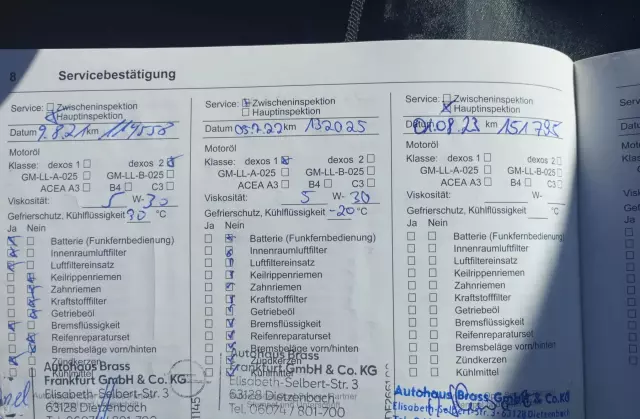 8 Servicebestätigung
Service: Zwischeninspektion
Hauptinspektion
Datum 9.8.21 km 114558
Motoröl
Klasse: dexos 1 dexos 2
GM-LL-A-025 GM-LL-B-025
ACEA A3 B4 C3
Viskosität: 5 W- 30
Gefrierschutz, Kühlflüssigkeit 30 °C
Ja Nein
Batterie (Funkfernbedienung)
Innenraumluftfilter
Luftfiltereinsatz
Keilrippenriemen
Zahnriemen
Kraftstofffilter
Getriebeöl
Bremsflüssigkeit
Reifenreparaturset
Bremsbeläge vorn/hinten
Zündkerzen
Kühlmittel
Autohaus Brass
Frankfurt GmbH & Co. KG
Elisabeth-Selbert-Str. 3
63128 Dietzenbach
Service: Zwischeninspektion
Hauptinspektion
Datum 05.7.22 km 132025
Motoröl
Klasse: dexos 1 dexos 2
GM-LL-A-025 GM-LL-B-025
ACEA A3 B4 C3
Viskosität: 5 W- 30
Gefrierschutz, Kühlflüssigkeit -20 °C
Ja Nein
Batterie (Funkfernbedienung)
Innenraumluftfilter
Luftfiltereinsatz
Keilrippenriemen
Zahnriemen
Kraftstofffilter
Getriebeöl
Bremsflüssigkeit
Reifenreparaturset
Bremsbeläge vorn/hinten
Zündkerzen
Kühlmittel
Autohaus Brass
Frankfurt GmbH & Co. KG
Elisabeth-Selbert-Str. 3
63128 Dietzenbach
Tel. 06074 / 801-700
Service: Zwischeninspektion
Hauptinspektion
Datum 01.08.23 km 151795
Motoröl
Klasse: dexos 1 dexos 2
GM-LL-A-025 GM-LL-B-025
ACEA A3 B4 C3
Viskosität: W-
Gefrierschutz, Kühlflüssigkeit °C
Ja Nein
Batterie (Funkfernbedienung)
Innenraumluftfilter
Luftfiltereinsatz
Keilrippenriemen
Zahnriemen
Kraftstofffilter
Getriebeöl
Bremsflüssigkeit
Reifenreparaturset
Bremsbeläge vorn/hinten
Zündkerzen
Kühlmittel
Autohaus Brass GmbH & Co.KG
Elisabeth-Selbert-Str. 3 • 63128 Dietzenbach